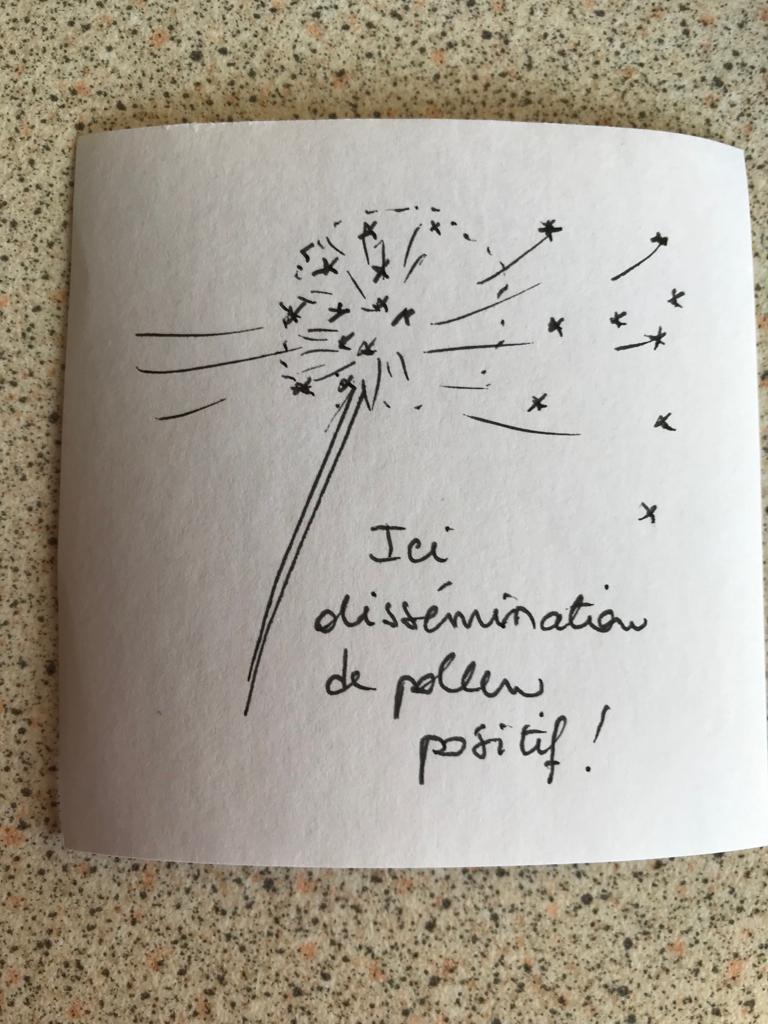 Ici
dissémination
de pollen
positif !